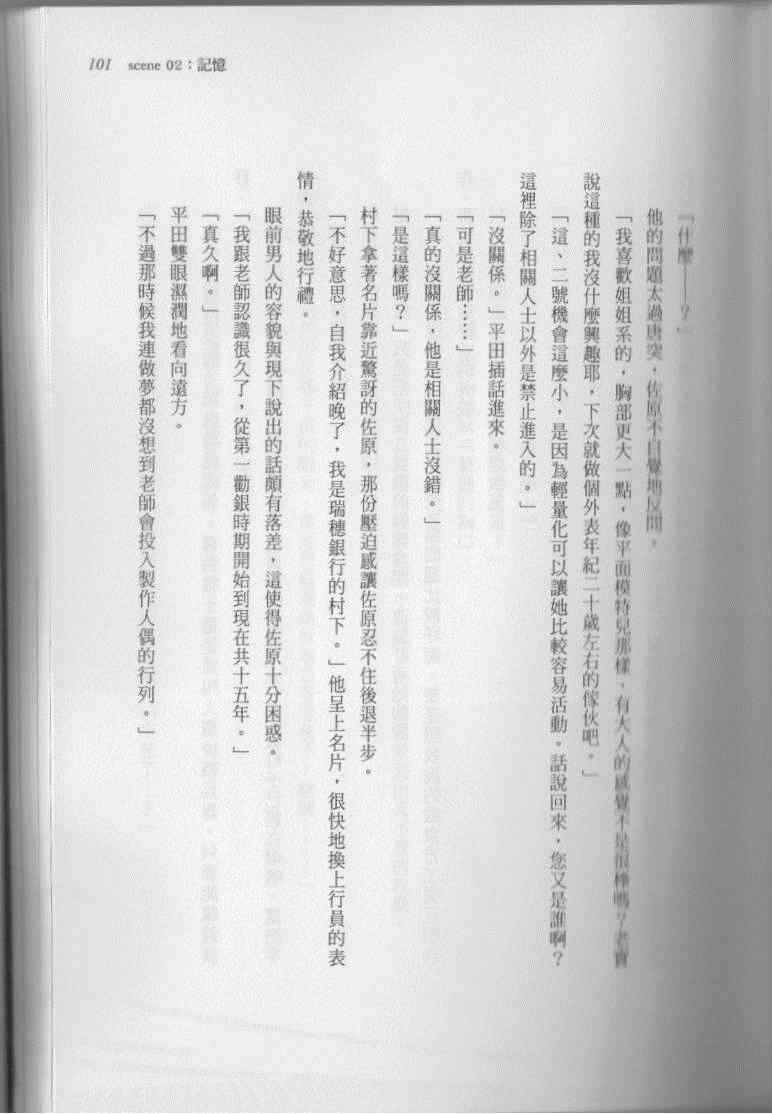 101 scene 02:記憶
「什麼……?」
他的問題太過唐突,佐原不自覺地反問。
「我喜歡姐姐系的,胸部更大一點,像平面模特兒那樣,有大人的感覺不是很棒嗎?老實
說這種的我沒什麼興趣耶,下次就做個外表年紀二十歲左右的傢伙吧。」
「這、二號機會這麼小,是因為輕量化可以讓她比較容易活動。話說回來,您又是誰啊?
這裡除了相關人士以外是禁止進入的。」
「沒關係。」平田插話進來。
「可是老師……」
「真的沒關係,他是相關人士沒錯。」
「是這樣嗎?」
村下拿著名片靠近驚訝的佐原,那份壓迫感讓佐原忍不住後退半步。
「不好意思,自我介紹晚了,我是瑞穗銀行的村下。」他呈上名片,很快地換上行員的表
情,恭敬地行禮。
眼前男人的容貌與現下說出的話頗有落差,這使得佐原十分困惑。
「我跟老師認識很久了,從第一勸銀時期開始到現在共十五年。」
「真久啊。」
平田雙眼濕潤地看向遠方。
「不過那時候我連做夢都沒想到老師會投入製作人偶的行列。」